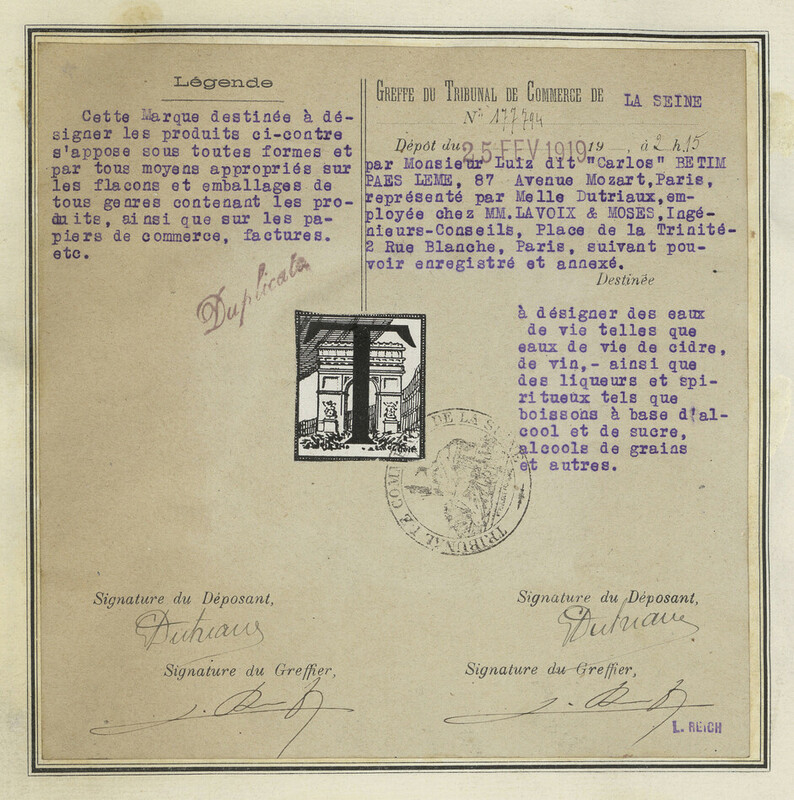 Légende
Cette Marque destinée à dé-
signer les produits ci-contre
s'appose sous toutes formes et
par tous moyens appropriés sur
les flacons et emballages de
tous genres contenant les pro-
duits, ainsi que sur les pa-
piers de commerce, factures.
etc.
Duplicata
GREFFE DU TRIBUNAL DE COMMERCE DE LA SEINE
N° 177794
Dépôt du 25 FEV 1919 19 , à 2 h. 15
par Monsieur Luiz dit "Carlos" BETIM
PAES LEME, 87 Avenue Mozart, Paris,
représenté par Melle Dutriaux, em-
ployée chez MM. LAVOIX & MOSES, Ingé-
nieurs-Conseils, Place de la Trinité-
2 Rue Blanche, Paris, suivant pou-
voir enregistré et annexé.
Destinée
à désigner des eaux
de vie telles que
eaux de vie de cidre,
de vin,- ainsi que
des liqueurs et spi-
ritueux tels que
boissons à base d'al-
cool et de sucre,
alcools de grains
et autres.
T
TRIBUNAL DE COMM DE LA S
Signature du Déposant,
Dutriaux
Signature du Greffier,
Signature du Déposant,
Dutriaux
Signature du Greffier,
L. REICH